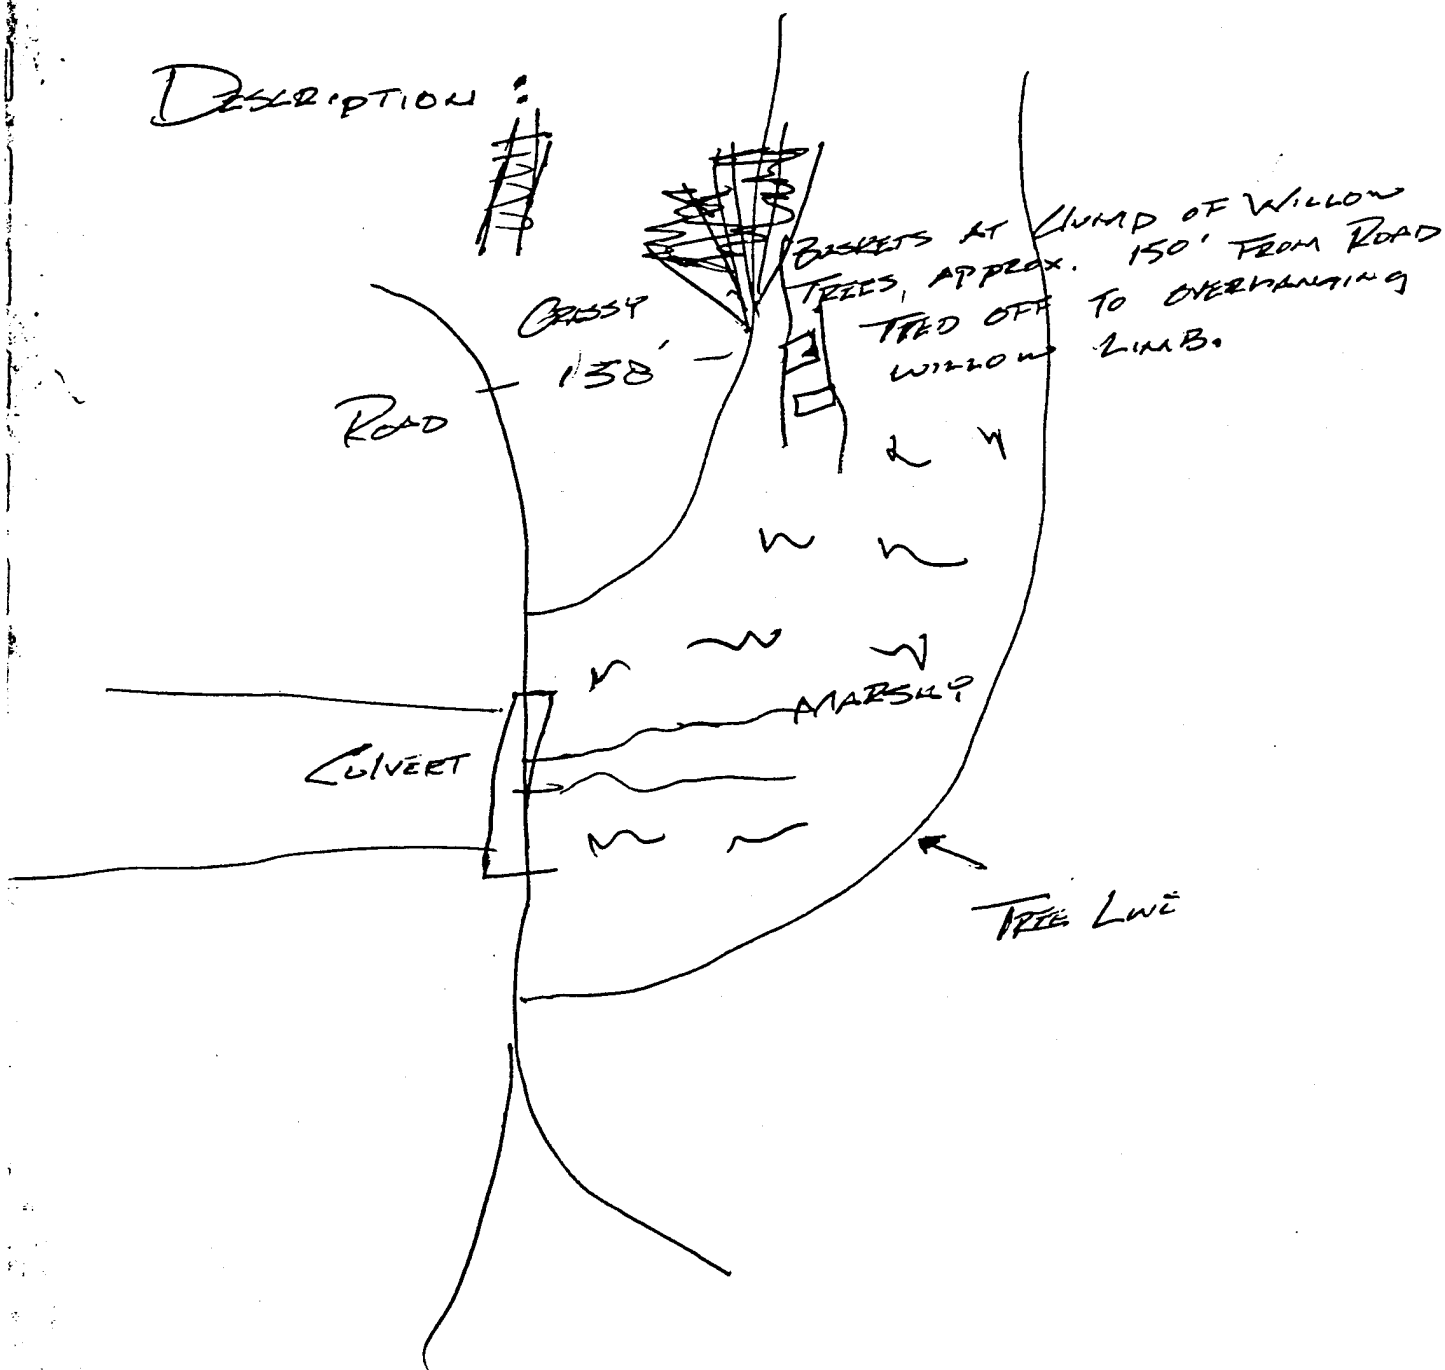 DESCRIPTION :
BASKETS AT CLUMP OF WILLOW
TREES, APPROX. 150' FROM ROAD
TIED OFF TO OVERHANGING
WILLOW LIMB.
GRASSY
150'
ROAD
MARSHY
CULVERT
TREE LINE